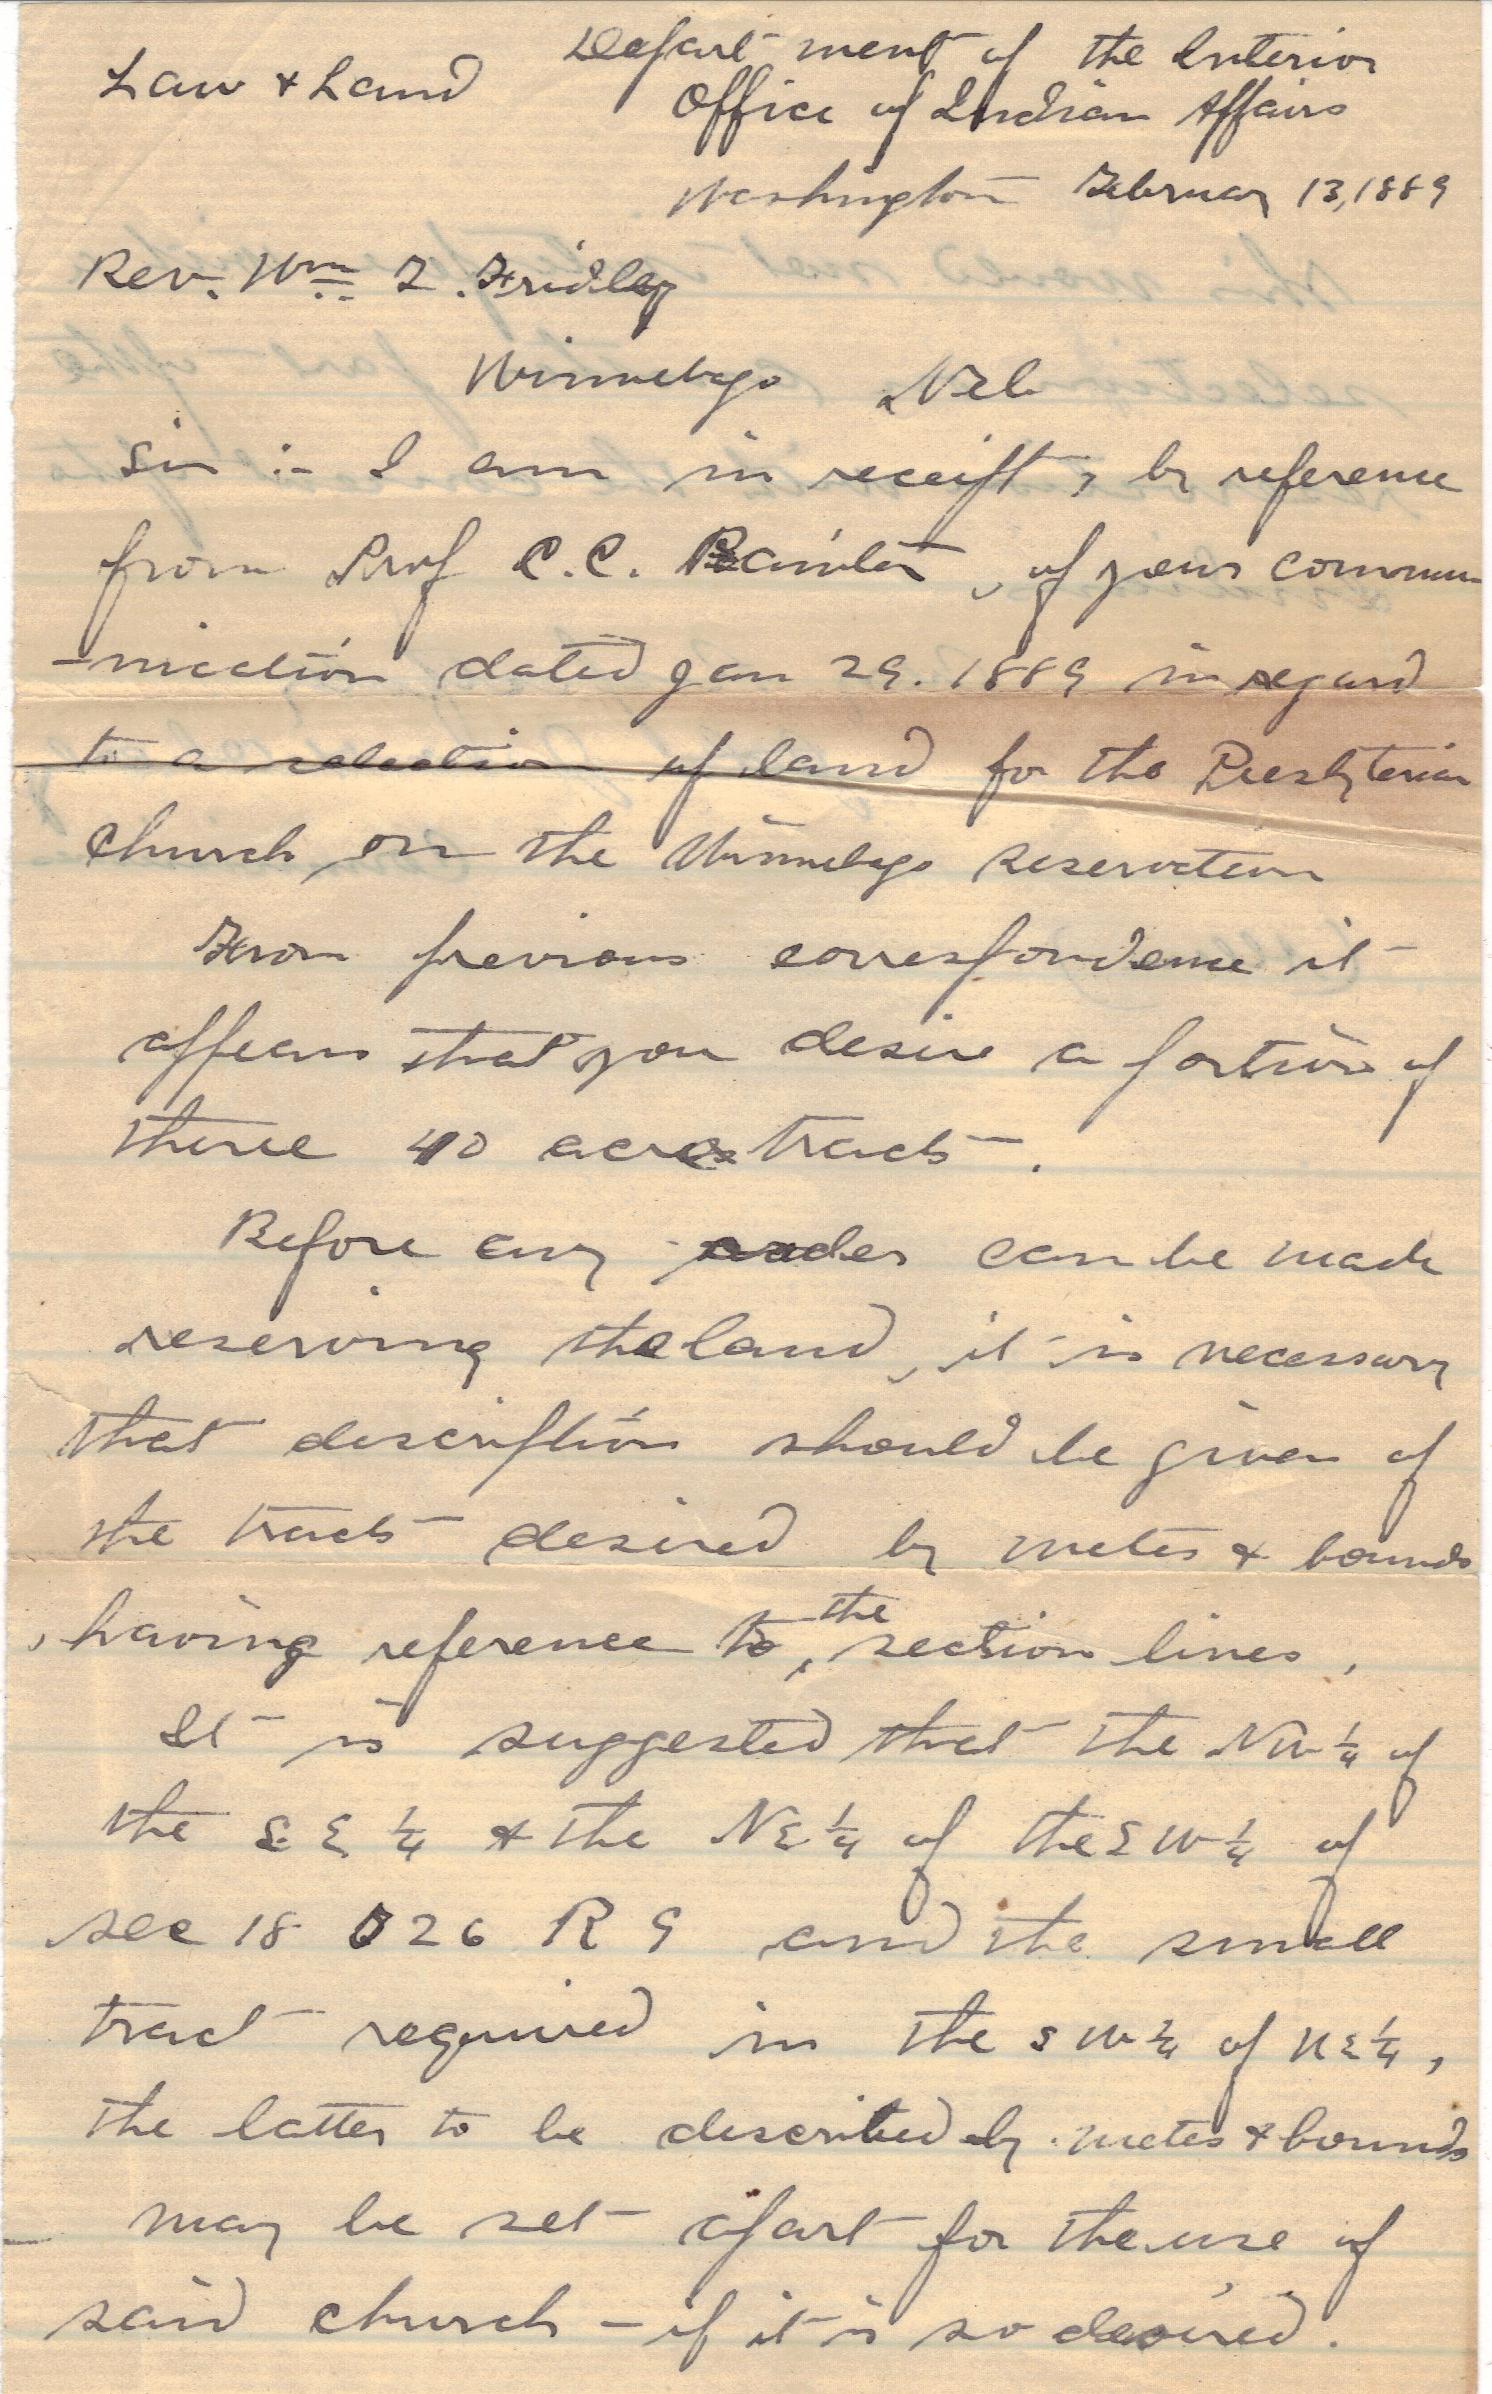 Law & Land
Department of the Interior
Office of Indian Affairs
Washington February 13, 1889
Rev. Wm T. Fridley
Winnebago Neb
Sir :- I am in receipt, by reference
from Prof C.C. Painter, of your commu-
-nication dated Jan 29. 1889 in regard
to a selection of land for the Presbyterian
church on the Winnebago reservation
From previous correspondence it
appears that you desire a portion of
three 40 acre tracts.
Before any order can be made
reserving the land, it is necessary
that description should be given of
the tracts desired by metes & bounds
, having reference to the section lines,
It is suggested that the NW 1/4 of
the S.E 1/4 & the NE 1/4 of the SW 1/4 of
sec 18 26 R 9 and the small
tract required in the SW 1/4 of NE 1/4,
the latter to be described by metes & bounds
may be set apart for the use of
said church - if it is so desired.